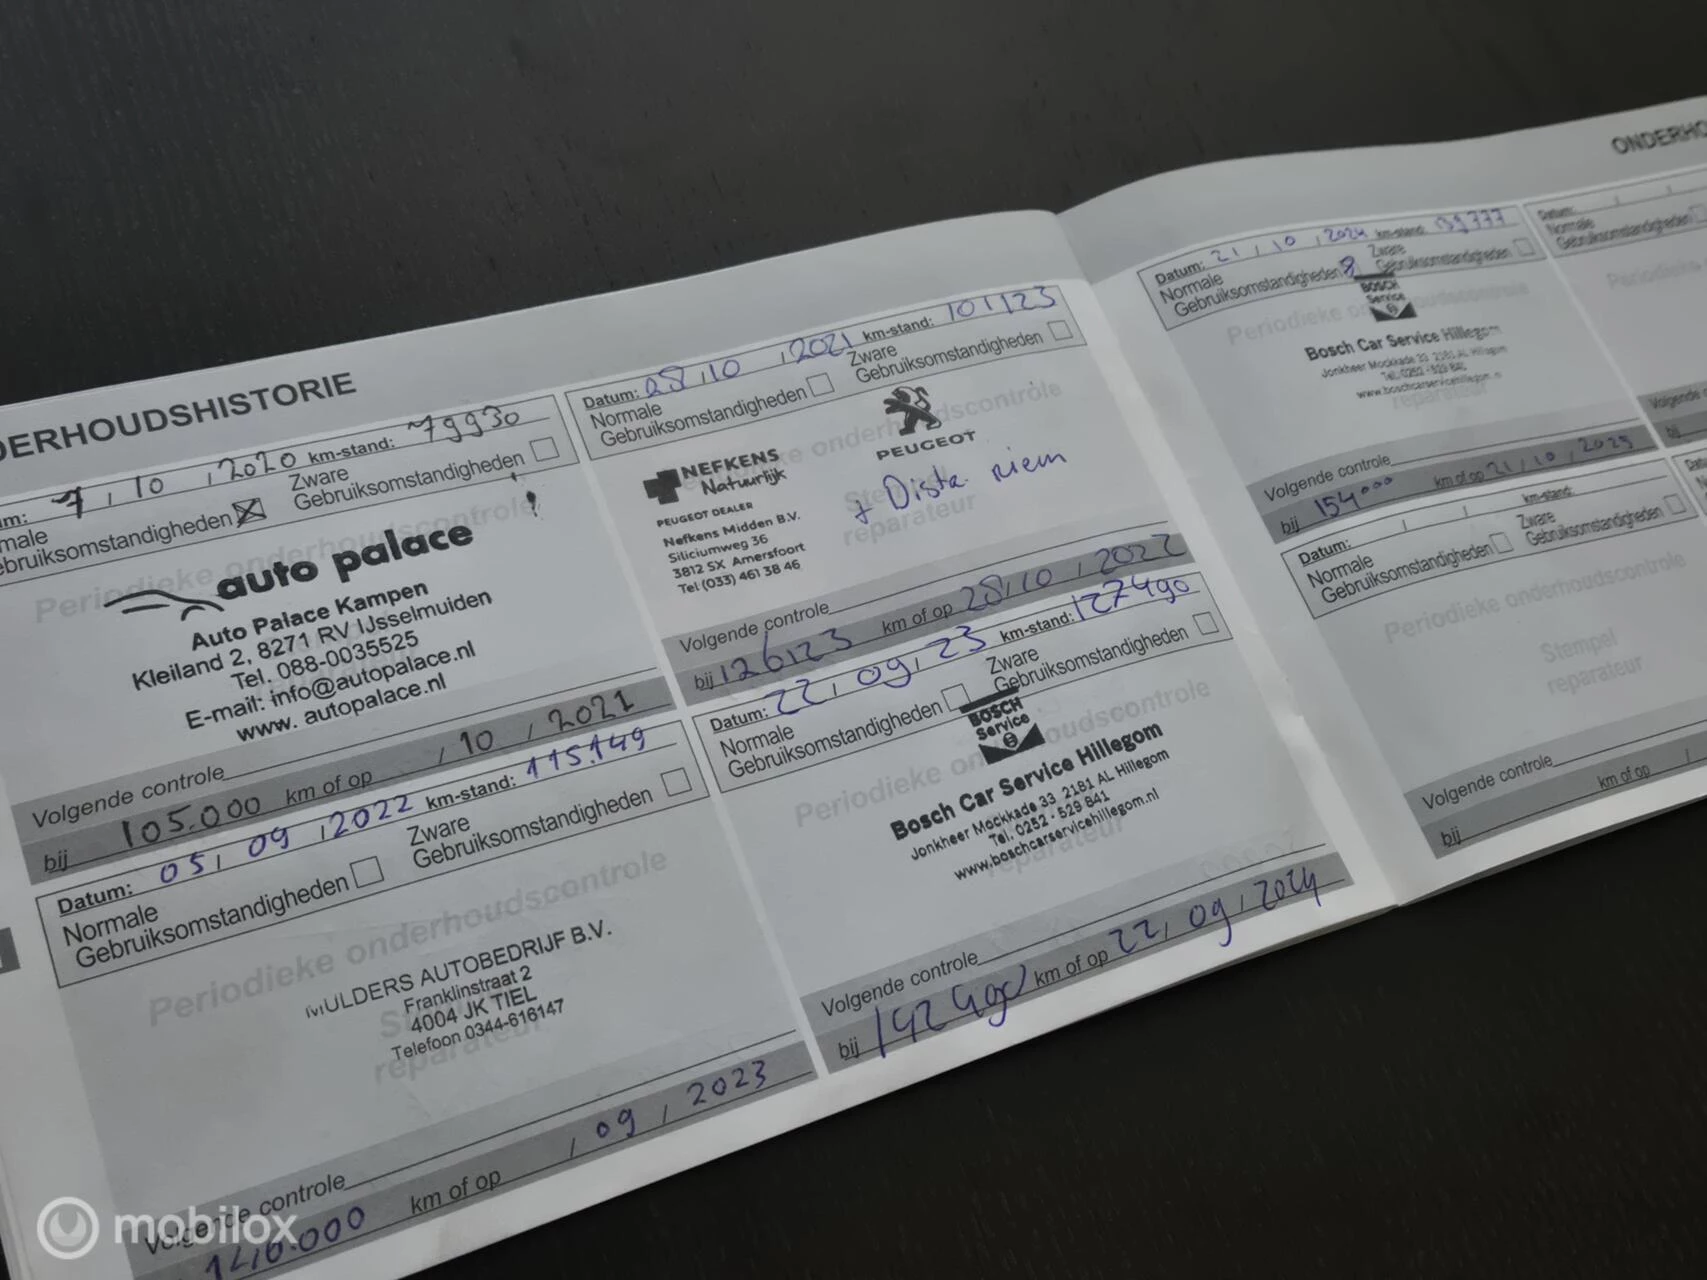 DERHOUDSHISTORIE
7 / 10 / 2020 km-stand: 79930
Zware
Gebruiksomstandigheden
auto palace
Auto Palace Kampen
Kleiland 2, 8271 RV IJsselmuiden
Tel. 088-0035525
E-mail: info@autopalace.nl
www. autopalace.nl
Volgende controle
bij 105.000 km of op / 10 / 2021
Datum: 05 / 09 / 2022 km-stand: 115.149
Normale
Gebruiksomstandigheden
Zware
Gebruiksomstandigheden
Periodieke onderhoudscontrole
MULDERS AUTOBEDRIJF B.V.
Franklinstraat 2
4004 JK TIEL
Telefoon 0344-616147
reparateur
Volgende controle
km of op / 09 / 2023
Datum: 28 / 10 / 2021 km-stand: 101123
Normale
Gebruiksomstandigheden
Zware
Gebruiksomstandigheden
NEFKENS
Natuurlijk
PEUGEOT DEALER
Nefkens Midden B.V.
Siliciumweg 36
3812 SX Amersfoort
Tel (033) 461 38 46
PEUGEOT
+ Dista riem
reparateur
Volgende controle
bij 126123 km of op 28 / 10 / 2022
Datum: 22 / 09 / 23 km-stand: 127490
Normale
Gebruiksomstandigheden
Zware
Gebruiksomstandigheden
BOSCH
Service
Bosch Car Service Hillegom
Jonkheer Mockkade 33 2181 AL Hillegom
Tel. 0252 - 529 841
www.boschcarservicehillegom.nl
Volgende controle
bij 142490 km of op 22 / 09 / 2024
ONDERHO
Datum: 21 / 10 / 2024 km-stand: 139777
Normale
Gebruiksomstandigheden
Zware
Gebruiksomstandigheden
BOSCH
Service
Bosch Car Service Hillegom
Jonkheer Mockkade 33 2181 AL Hillegom
Tel. 0252 - 529 841
www.boschcarservicehillegom.nl
reparateur
Volgende controle
bij 154000 km of op 21 / 10 / 2025
Datum: / / km-stand:
Normale
Gebruiksomstandigheden
Zware
Gebruiksomstandigheden
Periodieke onderhoudscontrole
Stempel
reparateur
Volgende controle
bij km of op /
Datum: / /
Normale
Gebruiksomstandigheden
mobilox